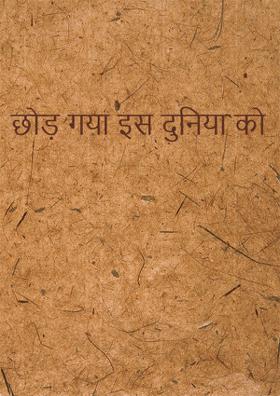 छोड़ गया इस दुनिया को